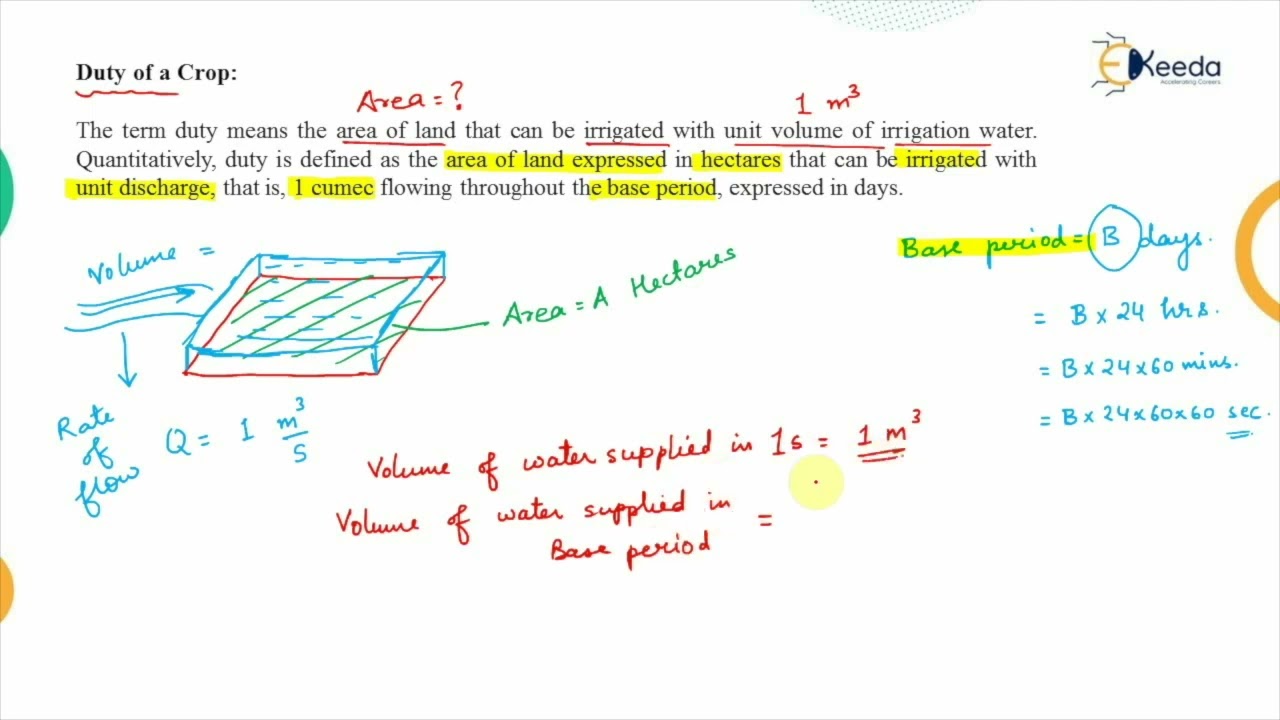 Duty of a Crop:
EKeeda
Accelerating Careers
Area = ?
1 m³
The term duty means the area of land that can be irrigated with unit volume of irrigation water.
Quantitatively, duty is defined as the area of land expressed in hectares that can be irrigated with
unit discharge, that is, 1 cumec flowing throughout the base period, expressed in days.
Volume =
Base period = B days.
Area = A Hectares
= B × 24 hrs.
= B × 24 × 60 mins.
= B × 24 × 60 × 60 sec.
Rate
of
flow
Q = 1 m³/s
Volume of water supplied in 1s = 1 m³
Volume of water supplied in
Base period =